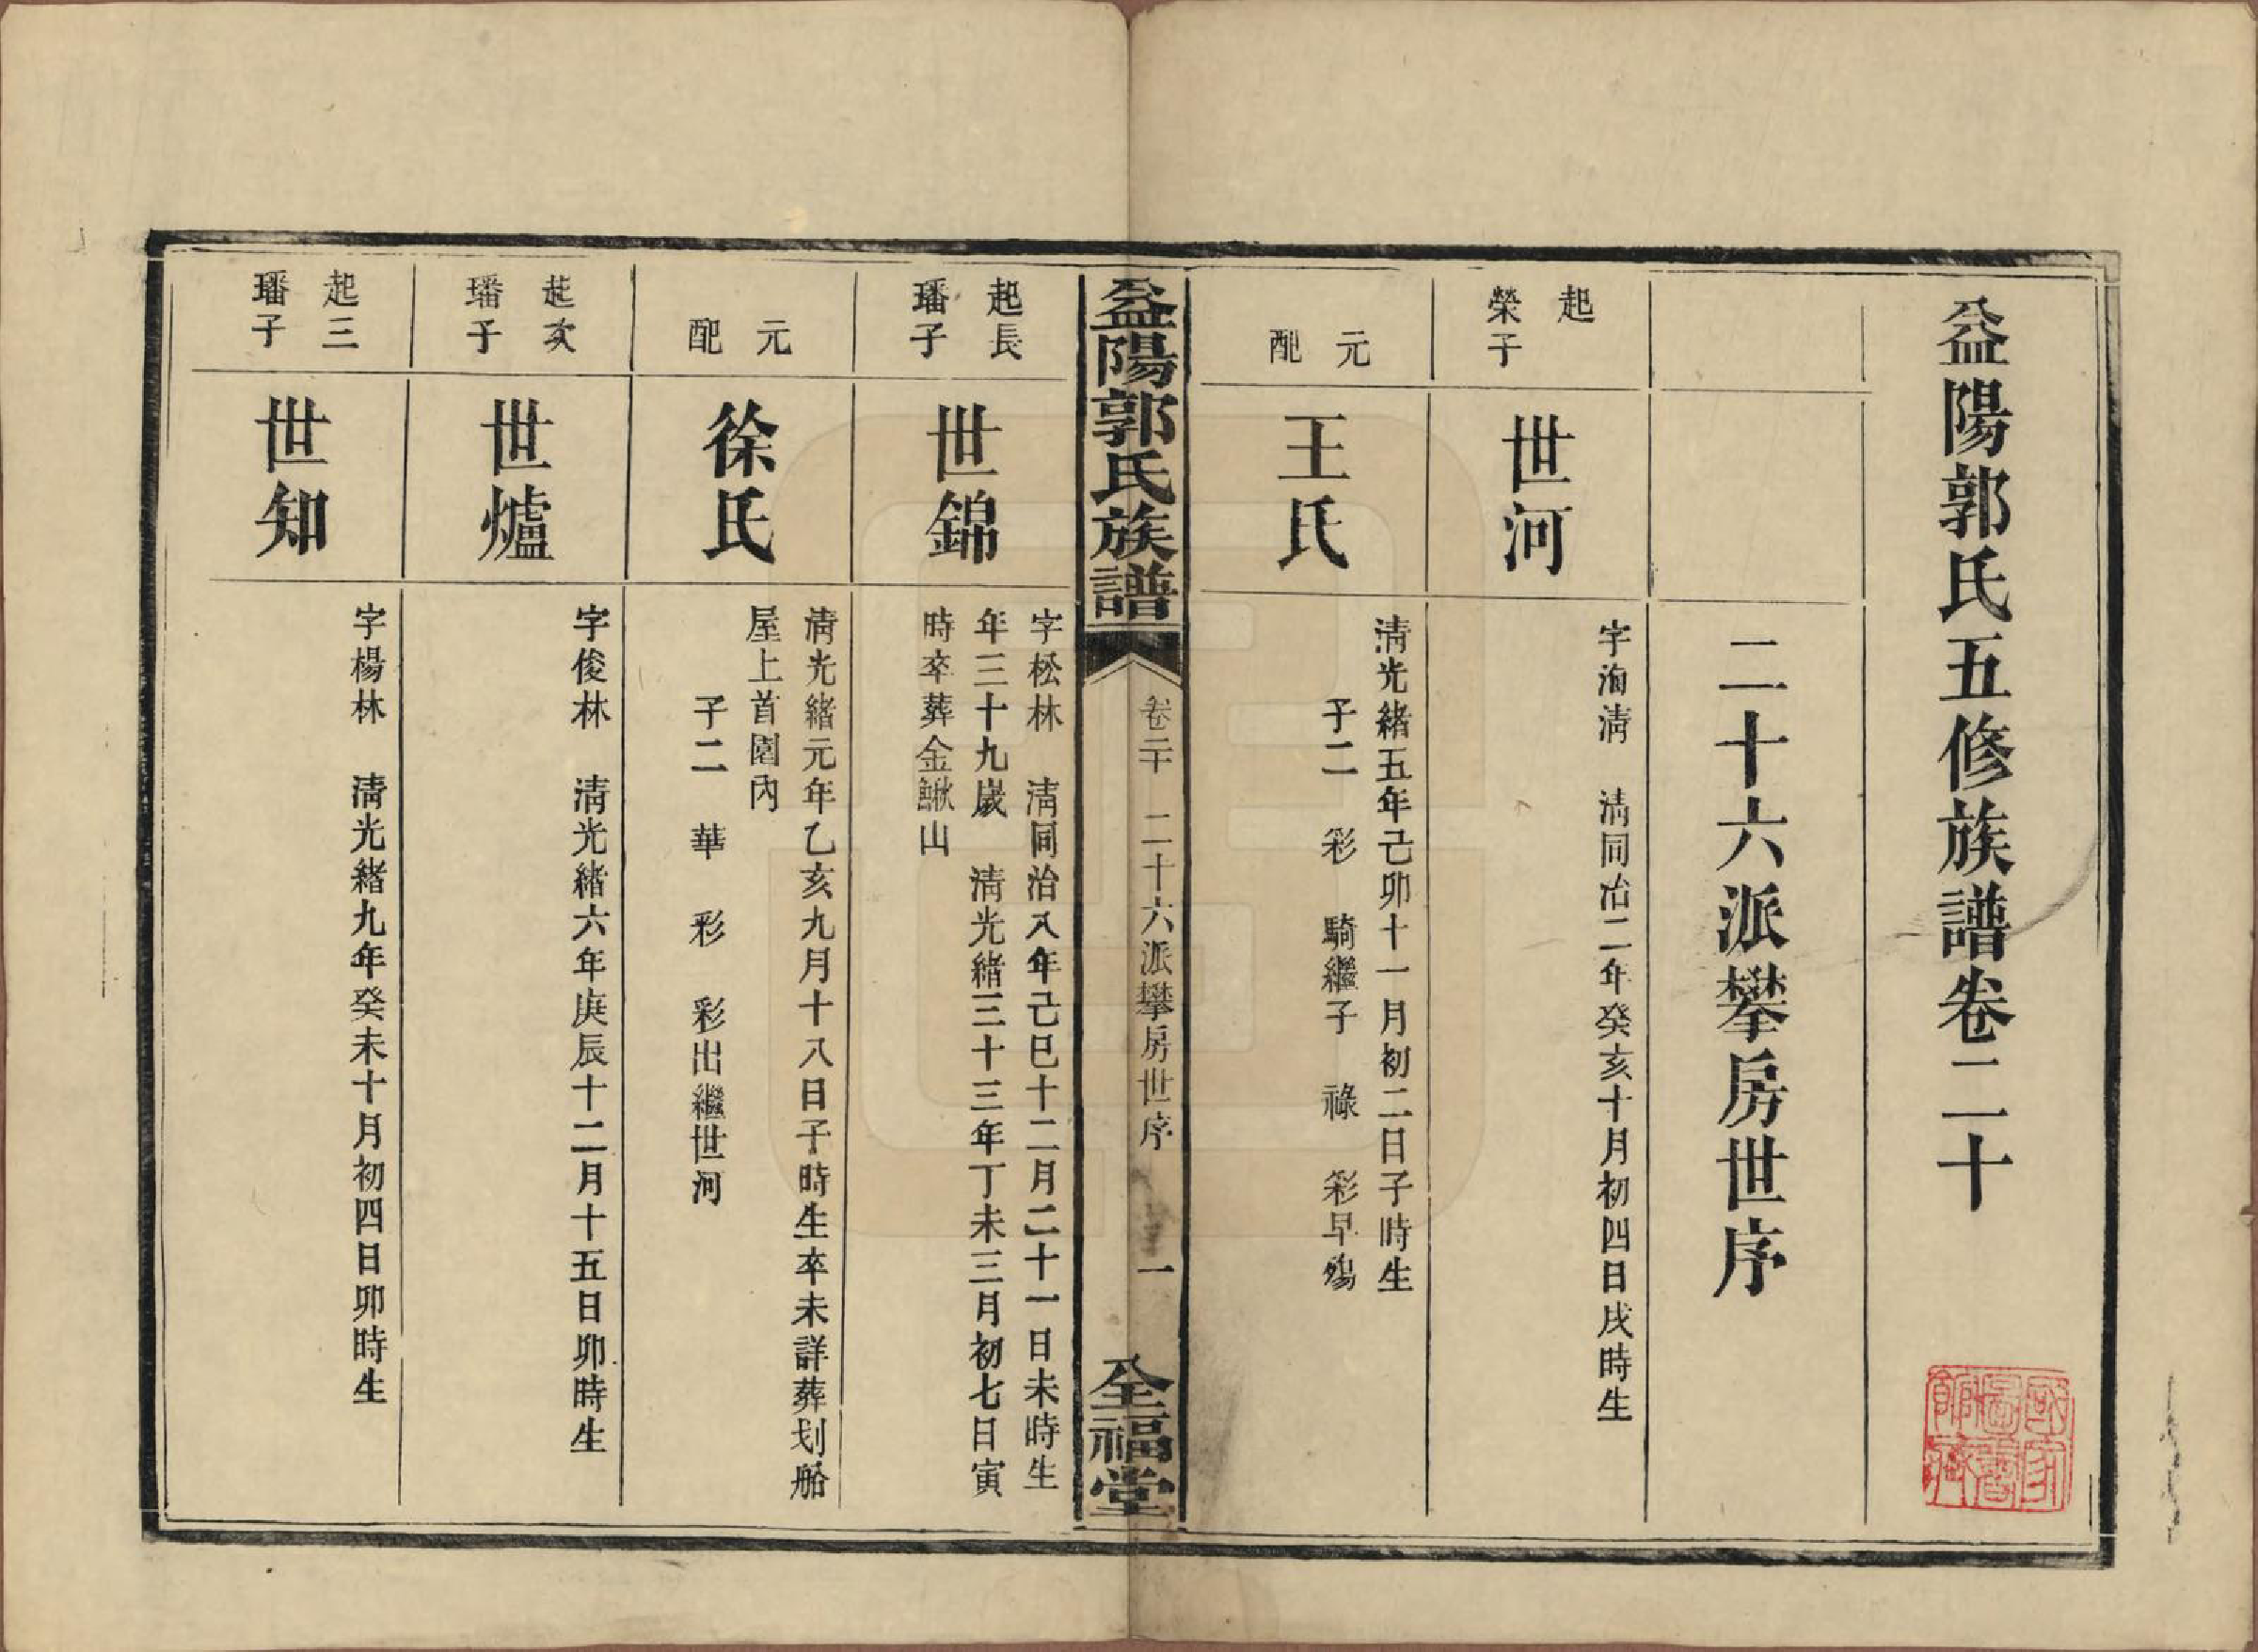 益陽郭氏五修族譜卷二十
二十六派攀房世序
起
榮子
世河
字海清　清同治二年癸亥十月初四日戌時生
元
配
王氏
清光緒五年己卯十一月初二日子時生
子二　彩　騎繼子　祿　彩早殤
益陽郭氏族譜
卷二十　二十六派攀房世序　一
全福堂
起長
璠子
世錦
字松林　清同治八年己巳十二月二十一日未時生
年三十九歲　清光緒三十三年丁未三月初七日寅
時卒葬金鰍山
元
配
徐氏
清光緒元年乙亥九月十八日子時生卒未詳葬划船
屋上首園內
子二　華　彩　彩出繼世河
起次
璠子
世爐
字俊林　清光緒六年庚辰十二月十五日卯時生
起三
璠子
世知
字楊林　清光緒九年癸未十月初四日卯時生
國家
圖書
館藏